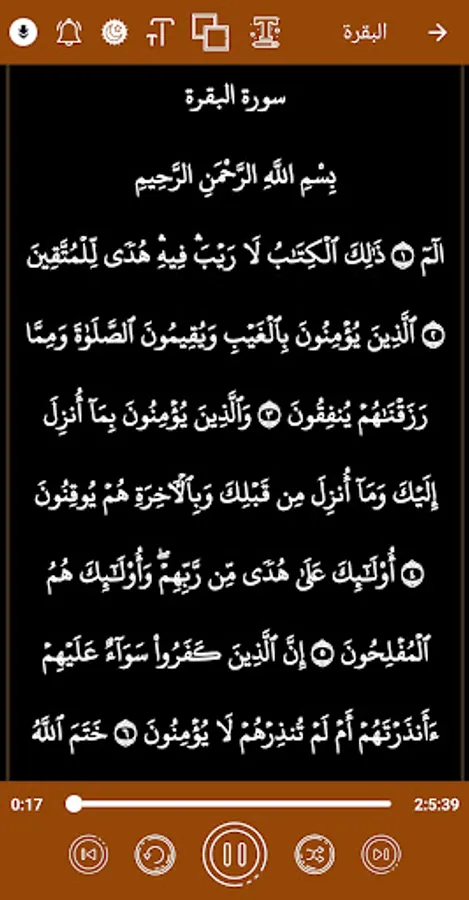 البقرة
سورة البقرة
بِسْمِ اللَّهِ الرَّحْمَنِ الرَّحِيمِ
الٓمٓ ١ ذَٰلِكَ ٱلْكِتَٰبُ لَا رَيْبَۛ فِيهِۛ هُدًى لِّلْمُتَّقِينَ
٢ ٱلَّذِينَ يُؤْمِنُونَ بِٱلْغَيْبِ وَيُقِيمُونَ ٱلصَّلَوٰةَ وَمِمَّا
رَزَقْنَٰهُمْ يُنفِقُونَ ٣ وَٱلَّذِينَ يُؤْمِنُونَ بِمَآ أُنزِلَ
إِلَيْكَ وَمَآ أُنزِلَ مِن قَبْلِكَ وَبِٱلْءَاخِرَةِ هُمْ يُوقِنُونَ
٤ أُوْلَٰٓئِكَ عَلَىٰ هُدًى مِّن رَّبِّهِمْۖ وَأُوْلَٰٓئِكَ هُمُ
ٱلْمُفْلِحُونَ ٥ إِنَّ ٱلَّذِينَ كَفَرُوا۟ سَوَآءٌ عَلَيْهِمْ
ءَأَنذَرْتَهُمْ أَمْ لَمْ تُنذِرْهُمْ لَا يُؤْمِنُونَ ٦ خَتَمَ ٱللَّهُ
0:17 2:5:39